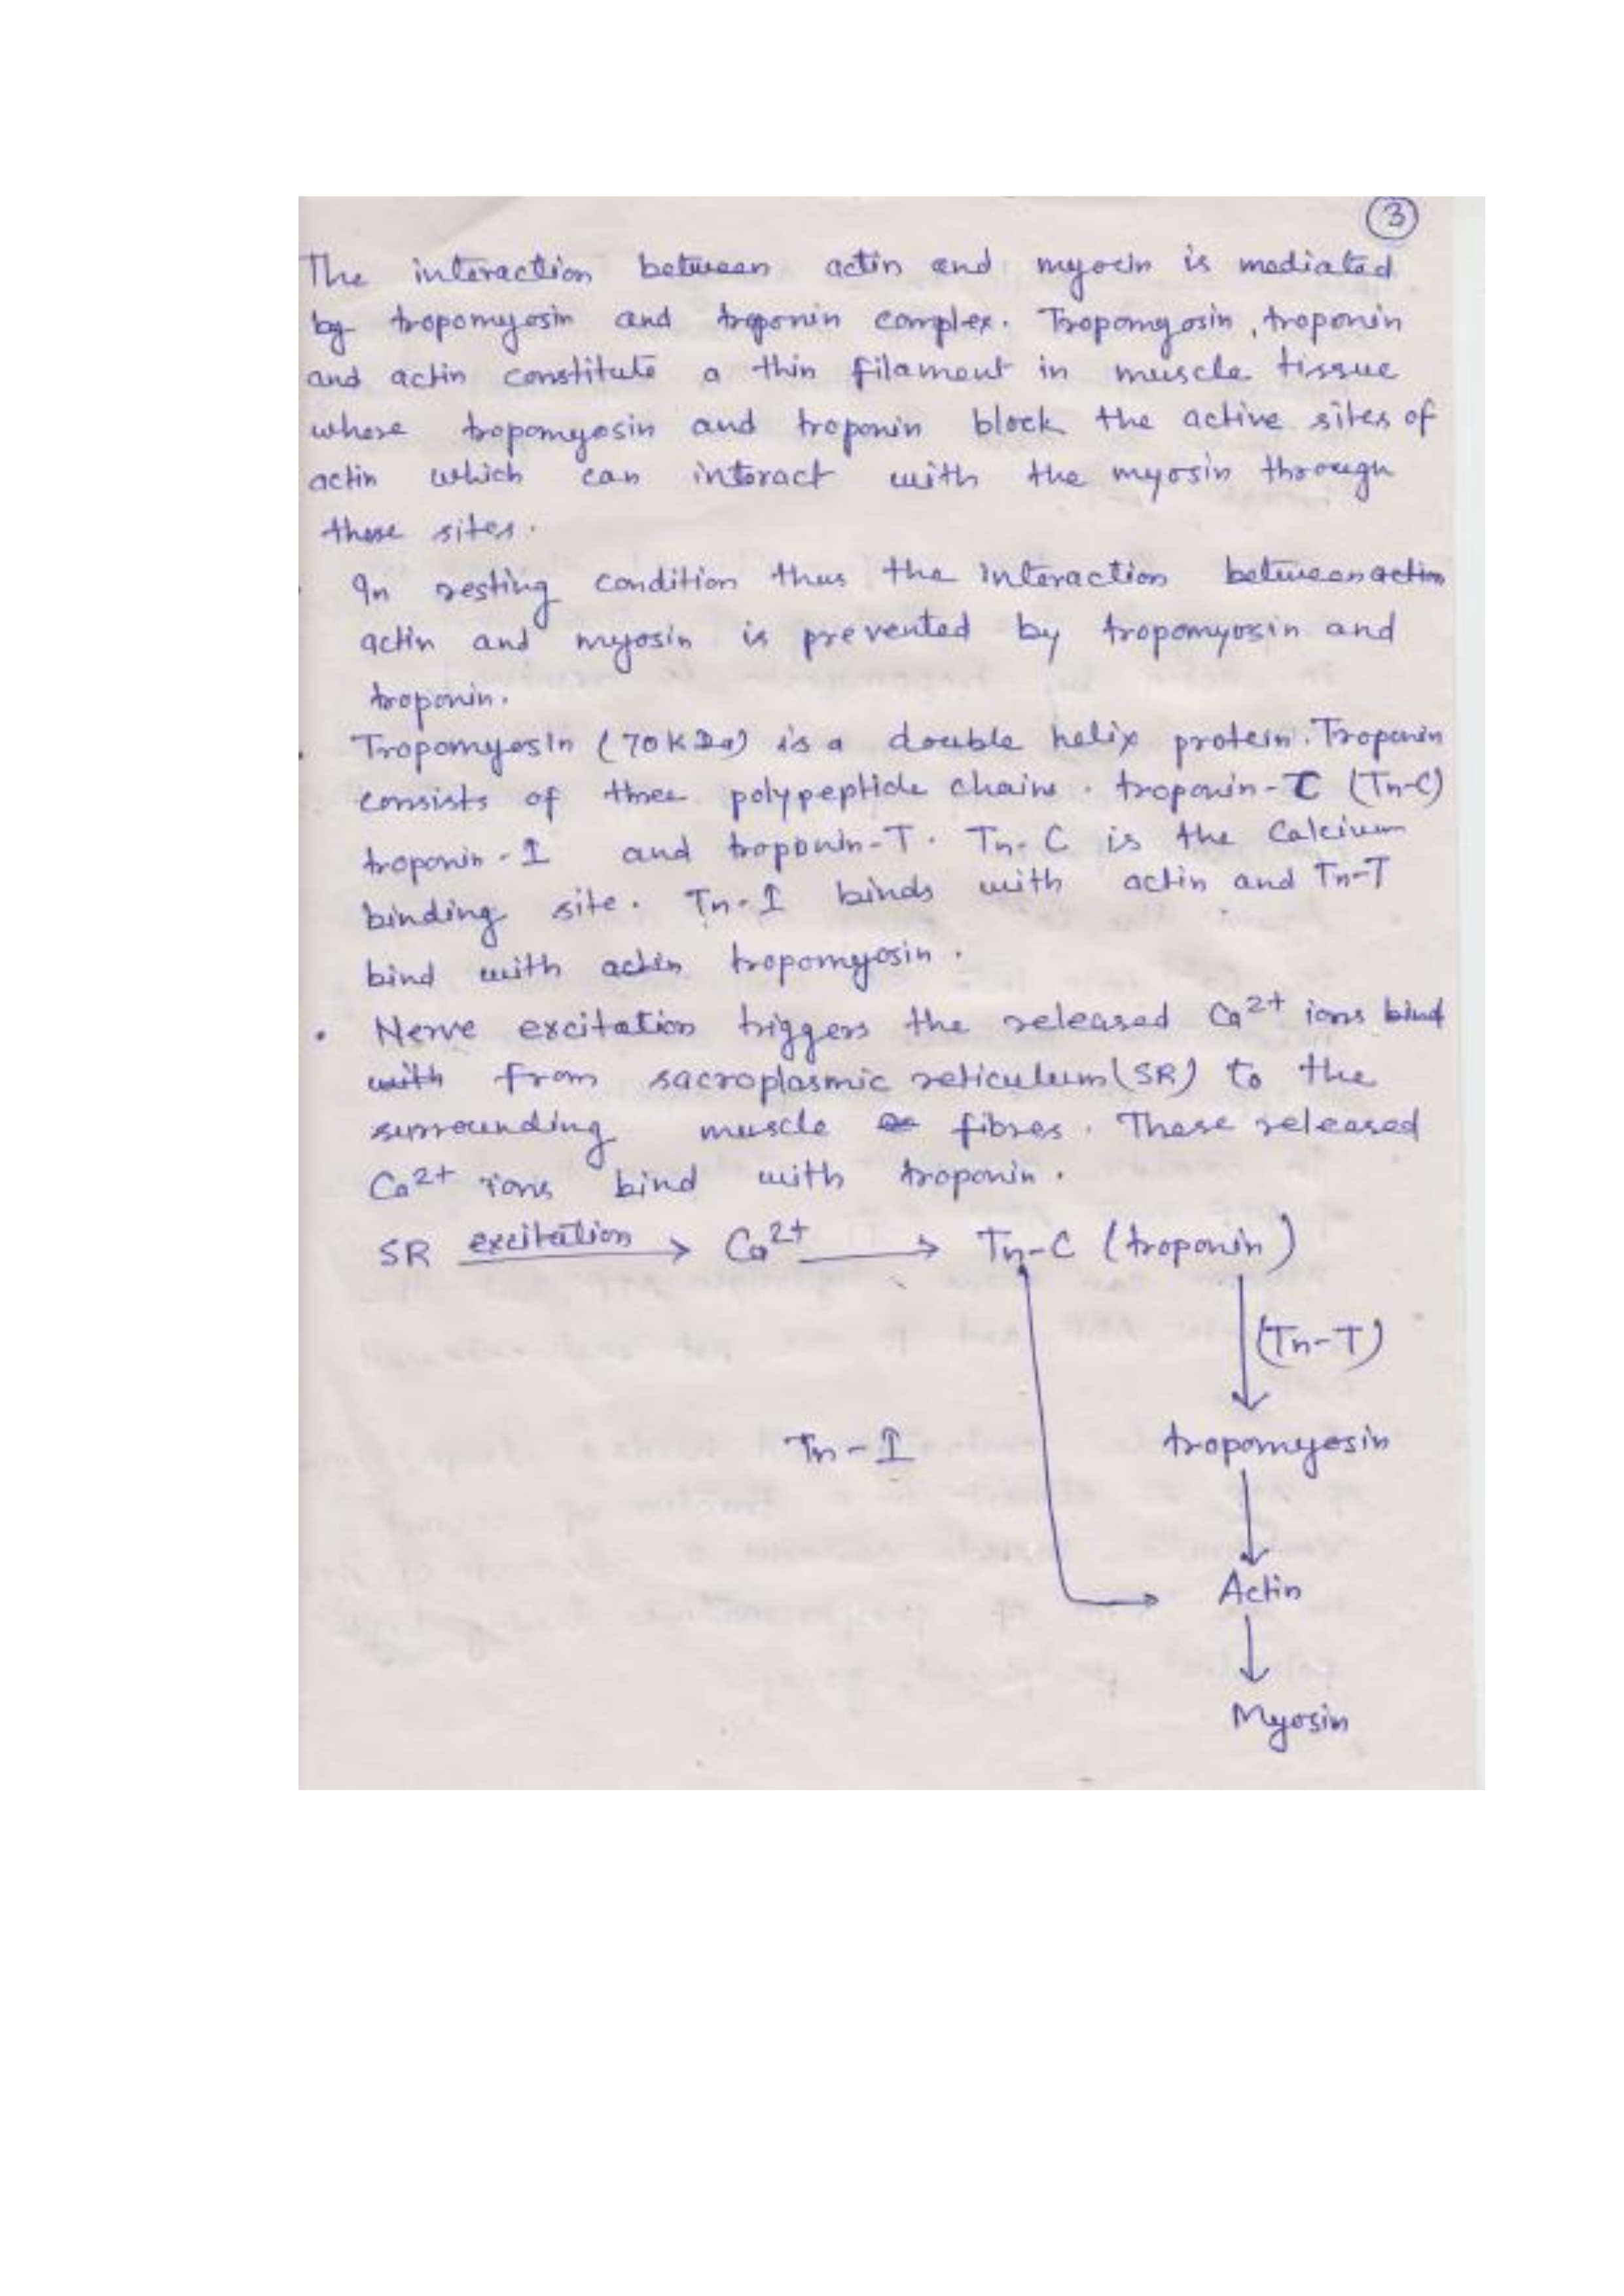 3
The interaction between actin and myosin is mediated
by tropomyosin and troponin complex. Tropomyosin, troponin
and actin constitute a thin filament in muscle tissue
where tropomyosin and troponin block the active sites of
actin which can interact with the myosin through
these sites.
In resting condition thus the interaction between actin
actin and myosin is prevented by tropomyosin and
troponin.
• Tropomyosin (70KDa) is a double helix protein. Troponin
consists of three polypeptide chains. troponin-C (Tn-C)
troponin-I and troponin-T. Tn-C is the Calcium
binding site. Tn-I binds with actin and Tn-T
bind with actin tropomyosin.
• Nerve excitation triggers the released Ca2+ ions bind
with from sacroplasmic reticulum(SR) to the
surrounding muscle fibres. These released
Ca2+ ions bind with troponin.
SR excitation → Ca2+ → Tn-C (troponin)
(Tn-T)
Tn-I tropomyosin
Actin
Myosin